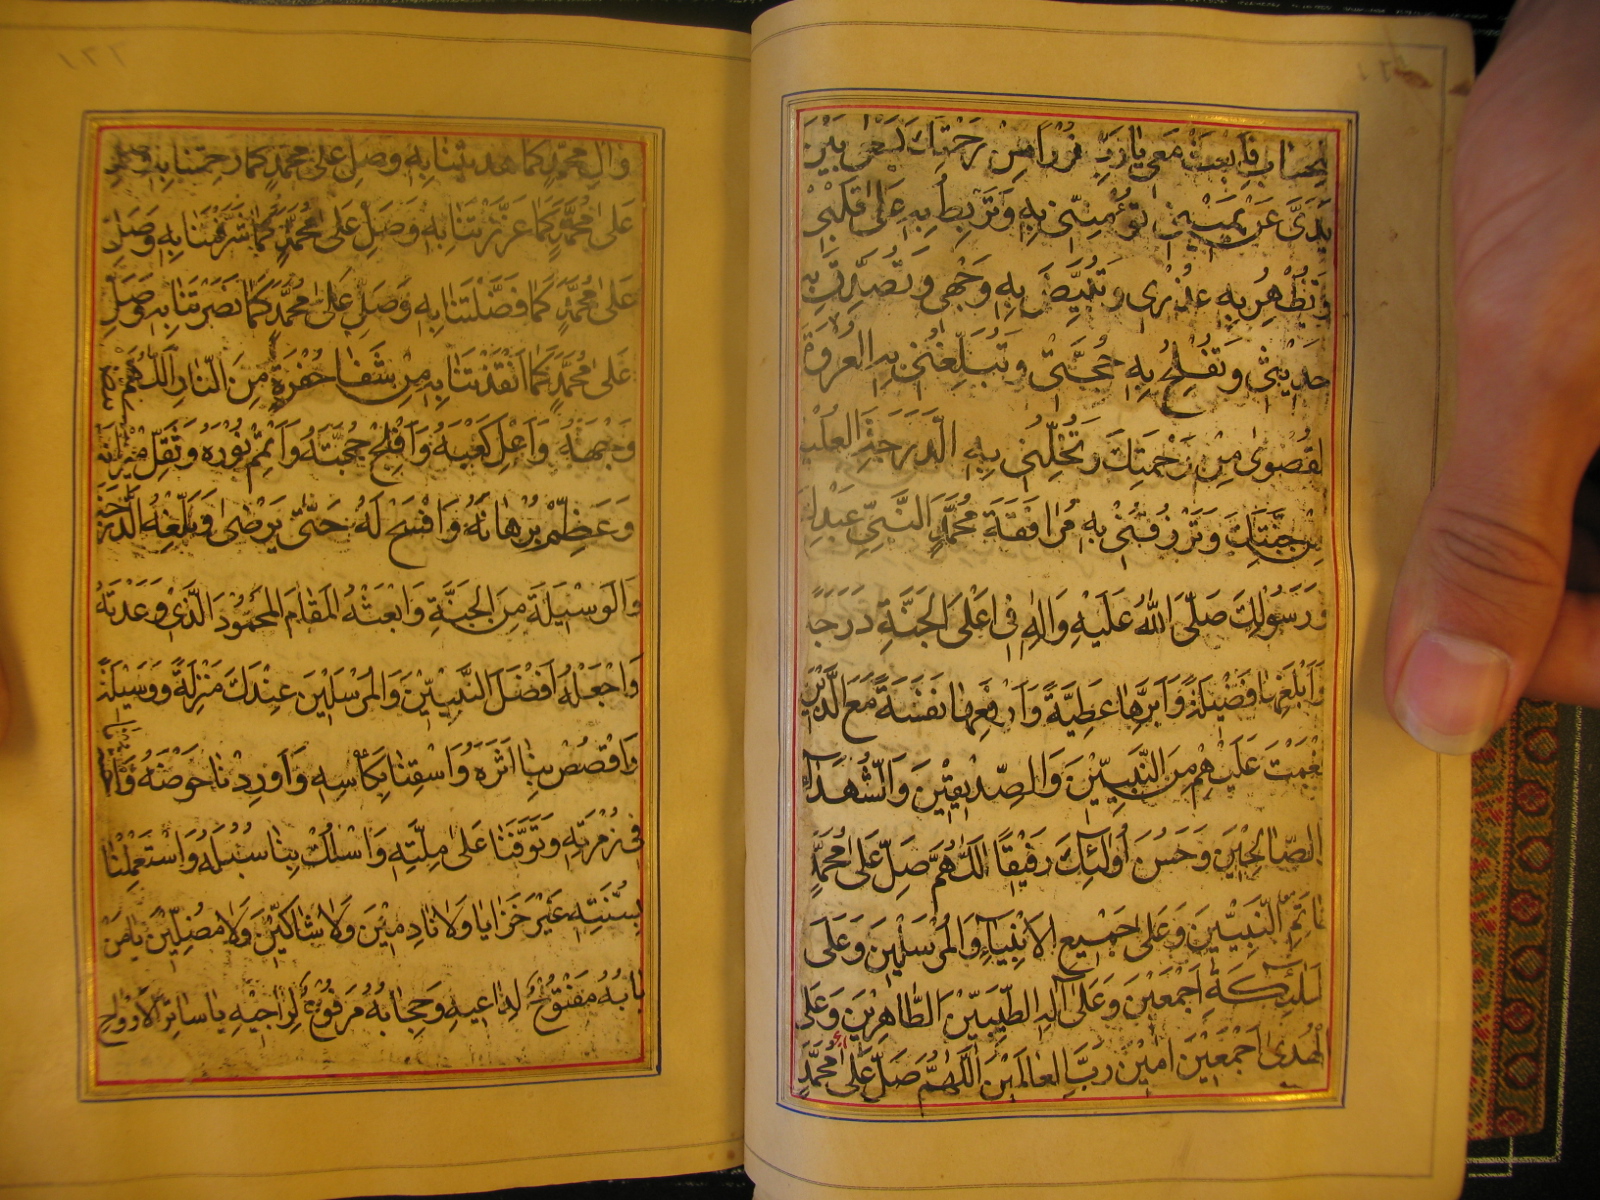 الحساب فابعث معي يا رب نورا من رحمتك يسعى بين
يدي وعن يميني تؤمنني به وتربط به على قلبي
وتظهر به عذري وتبيض به وجهي وتصدق به
حديثي وتفلج به حجتي وتبلغني به العروة
القصوى من رحمتك وتحلني به الدرجة العليا
من جنتك وترزقني به مرافقة محمد النبي عبدك
ورسولك صلى الله عليه واله في اعلى الجنة درجة
وابلغها فضيلة وابرها عطية وارفعها نفسة مع الذين
انعمت عليهم من النبيين والصديقين والشهداء
والصالحين وحسن أولئك رفيقا اللهم صل على محمد
خاتم النبيين وعلى جميع الانبياء والمرسلين وعلى
الملائكة أجمعين وعلى اله الطيبين الطاهرين وعلى
الهدى اجمعين امين رب العالمين اللهم صل على محمد
وال محمد كما هديتنا به وصل على محمد كما رحمتنا به وصل
على محمد كما عززتنا به وصل على محمد كما شرفتنا به وصل
على محمد كما فضلتنا به وصل على محمد كما نصرتنا به وصل
على محمد كما انقذتنا به من شفا حفرة من النار اللهم
وجهه واعل كعبه وافلج حجته واتمم نوره وثقل ميزانه
وعظم برهانه وافسح له حتى يرضى وبلغه الدرجة
والوسيلة من الجنة وابعثه المقام المحمود الذي وعدته
واجعله افضل النبيين والمرسلين عندك منزلة ووسيلة
واقصص بنا اثره واسقنا بكأسه واوردنا حوضه
في زمرته وتوفنا على ملته واسلك بنا سبله واستعملنا
بسنته غير خزايا ولا نادمين ولا شاكين ولا مضلين يا من
بابه مفتوح لداعيه وحجابه مرفوع لراجيه يا ساتر الامر